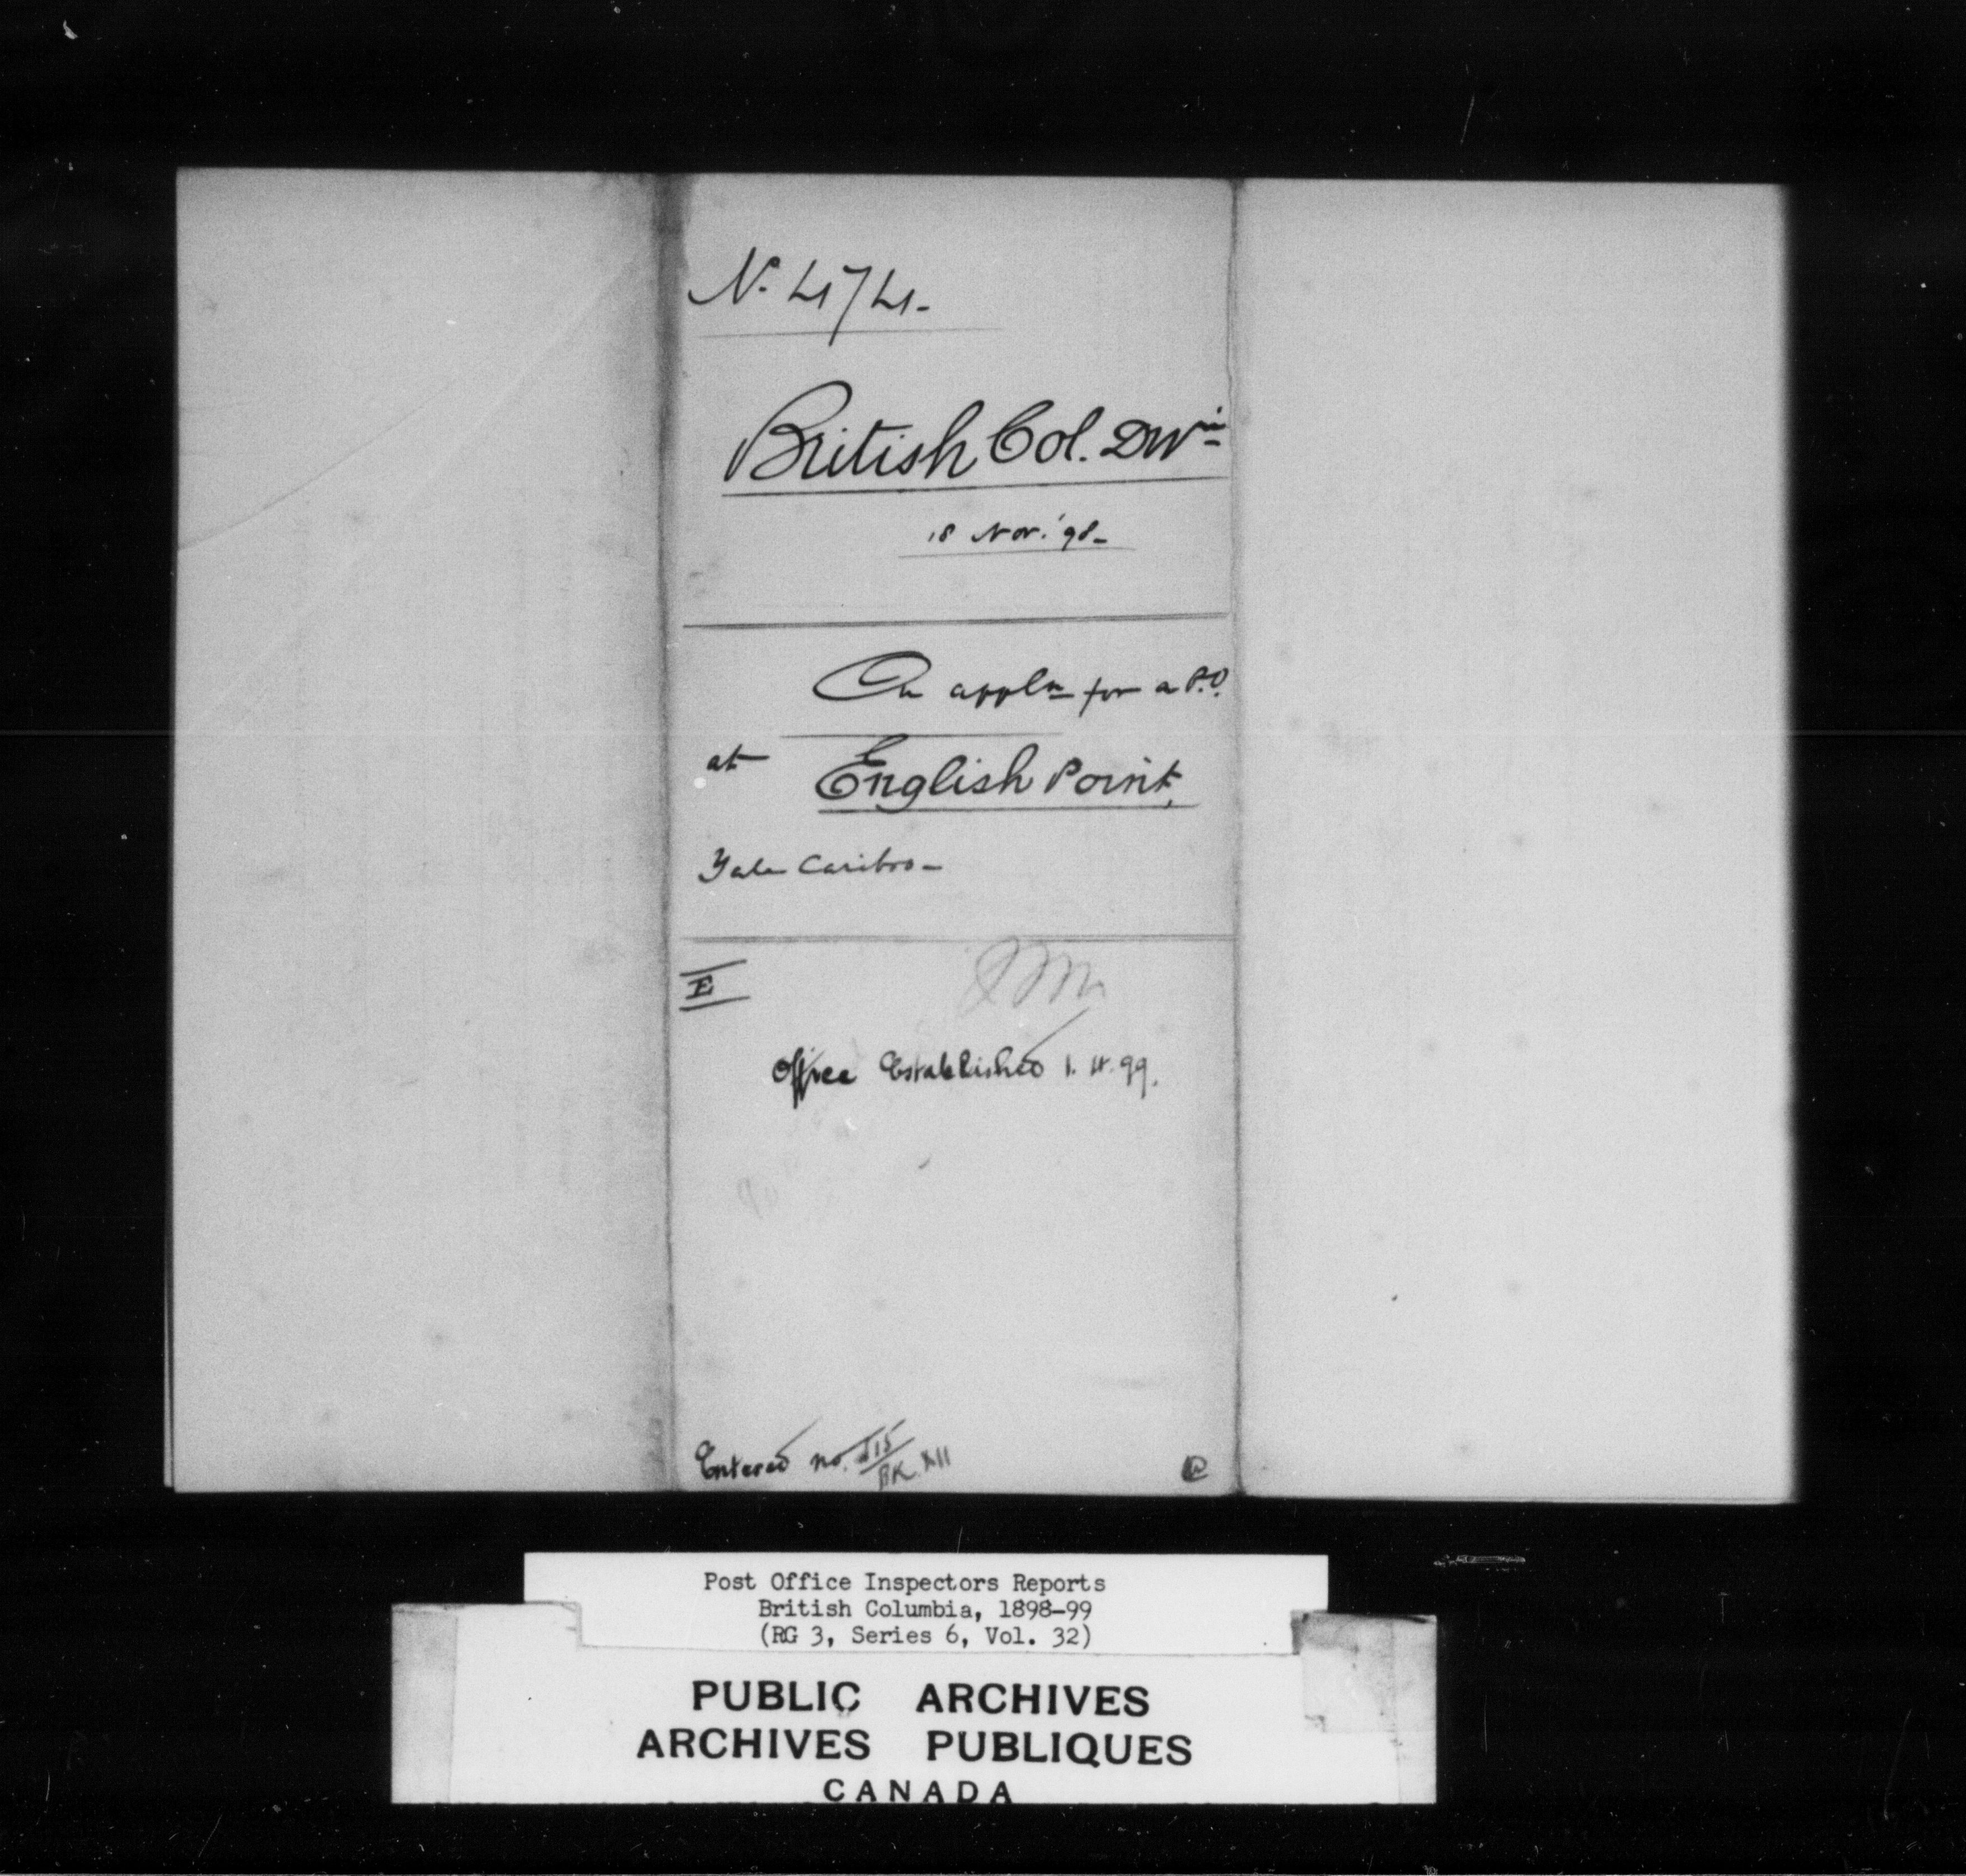 No. 474-
British Col. Dn
18 Nov. '98-
On appln for a P.O.
at English Point,
Yale Cariboo-
E
Office Established 1.4.99.
Entered no. 515/BK. XII
Post Office Inspectors Reports
British Columbia, 1898-99
(RG 3, Series 6, Vol. 32)
PUBLIC ARCHIVES
ARCHIVES PUBLIQUES
CANADA